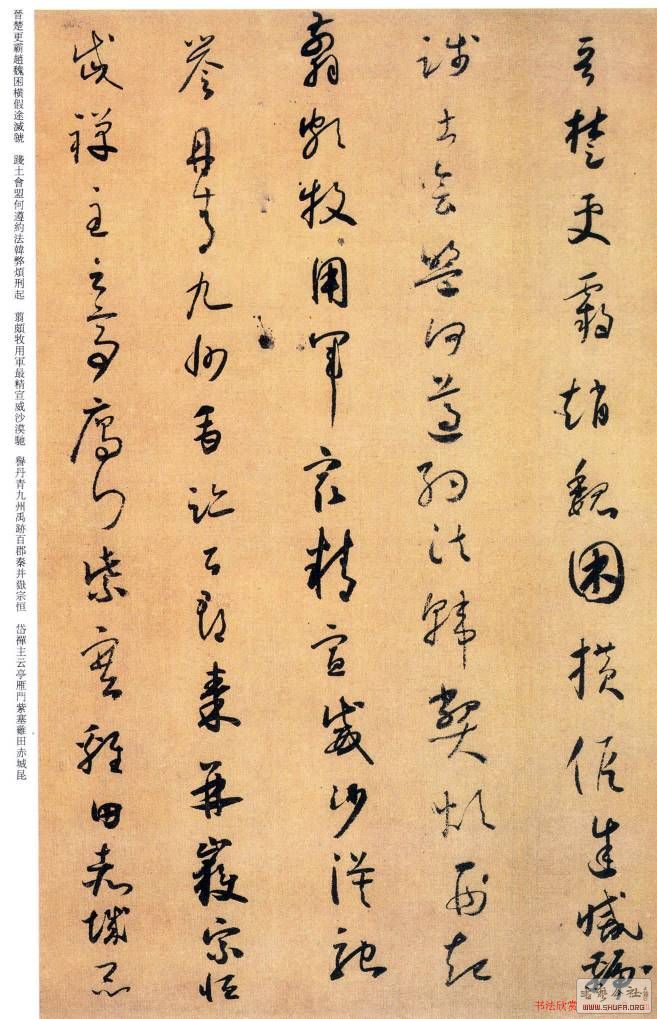 晉楚更霸趙魏困橫假途滅虢
踐土會盟何遵約法韓弊煩刑起
翦頗牧用軍最精宣威沙漠馳
譽丹青九州禹跡百郡秦并嶽宗恒
岱禪主云亭雁門紫塞雞田赤城昆
晉楚更霸趙魏困橫假途滅虢 踐土會盟何遵約法韓弊煩刑起 翦頗牧用軍最精宣威沙漠馳 譽丹青九州禹跡百郡秦并嶽宗恒 岱禪主云亭雁門紫塞雞田赤城昆
书法欣赏
WWW.SHUFA.ORG